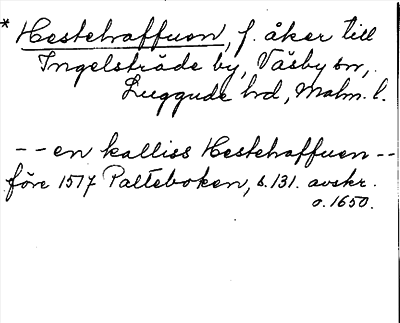 * Hestehaffuen, f. åker till
Ingelsträde by, Väsby sn,
Luggude hd, Malm. l.
-- en kalliss Hestehaffuen --
före 1517 Palteboken, s. 131. avskr.
o. 1650.